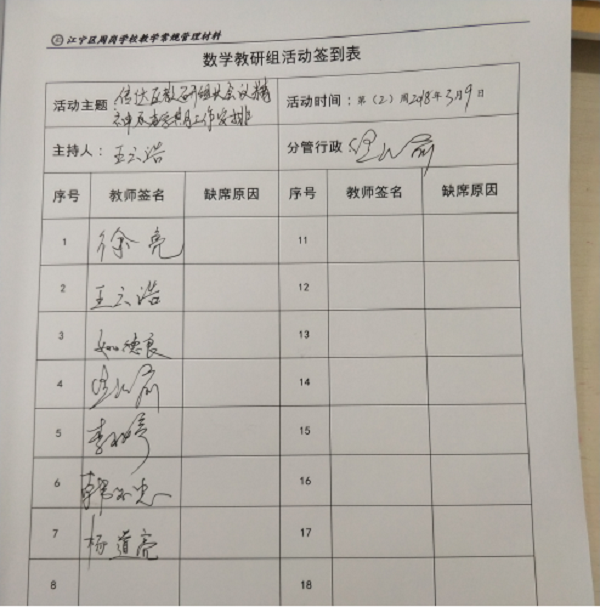 江宁区周岗学校教学常规管理材料
数学教研组活动签到表
活动主题 传达区教研组长会议精
神及本学期工作安排
活动时间：第（2）周2018年3月9日
主持人：王云浩
分管行政
序号 教师签名 缺席原因 序号 教师签名 缺席原因
1 徐亮 11
2 王云浩 12
3 德良 13
4 14
5 李 15
6 韩 忠 16
7 杨道亮 17
8 18